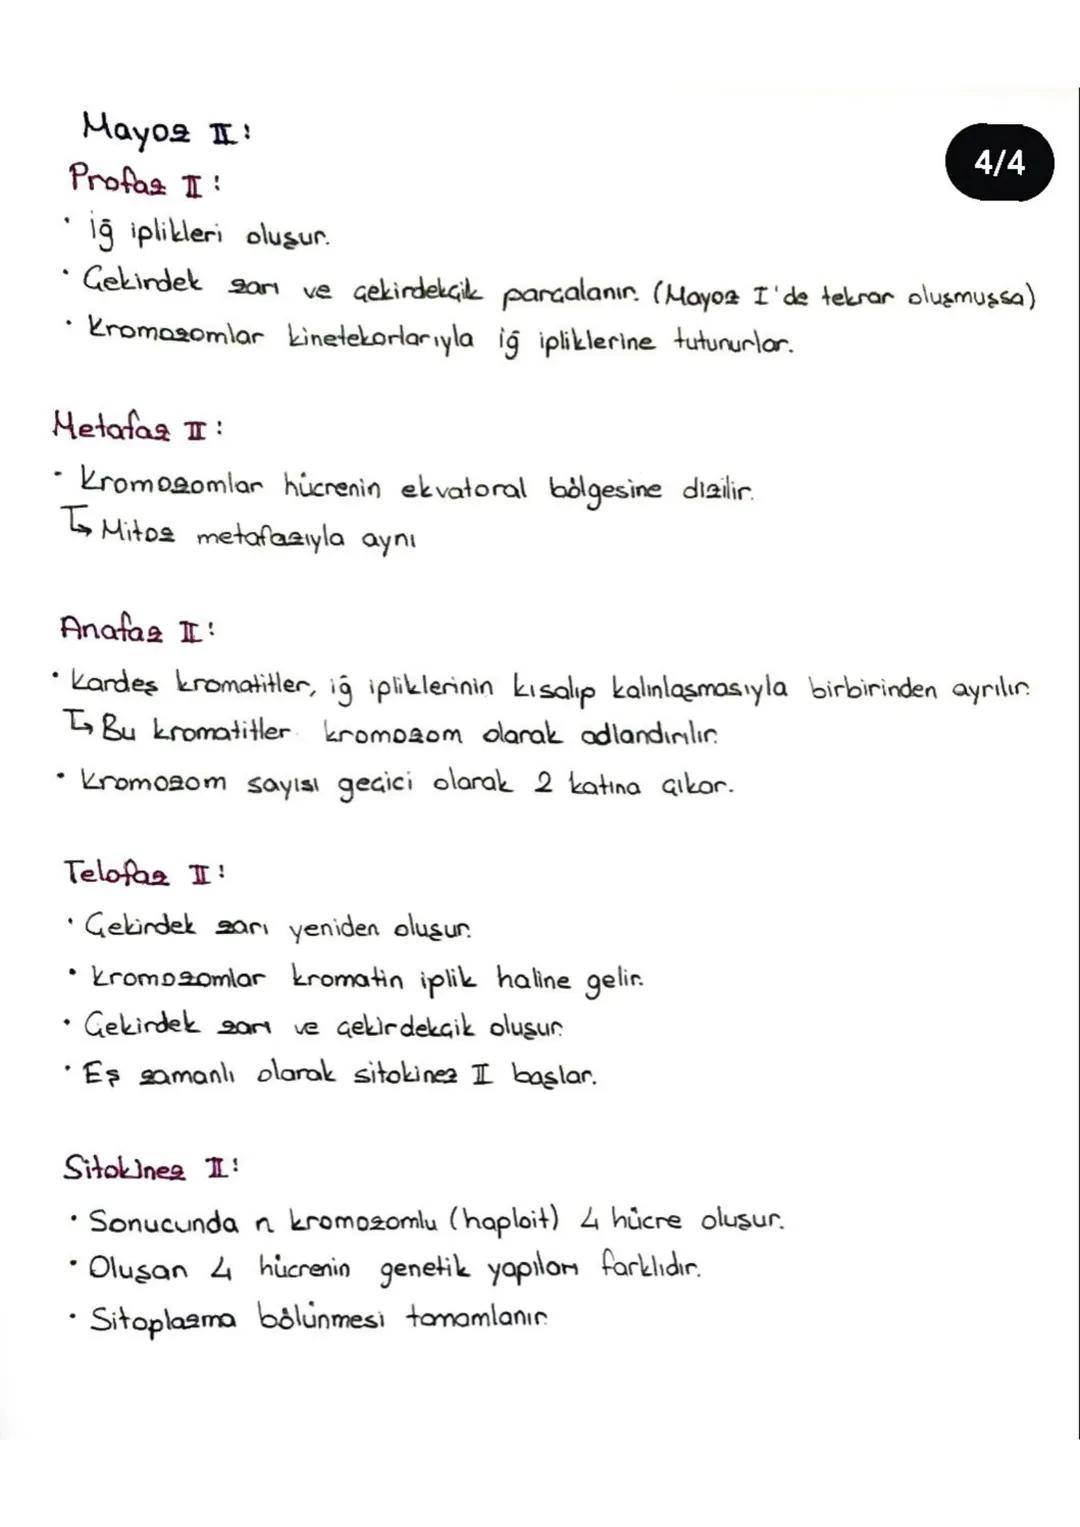 Mayoz II:
4/4
Profaz II:
• iğ iplikleri oluşur.
• Çekirdek zarı ve çekirdekçik parçalanır. (Mayoz I'de tekrar oluşmuşsa)
• Kromozomlar kinetekorlarıyla iğ ipliklerine tutunurlar.
Metafaz II:
• Kromozomlar hücrenin ekvatoral bölgesine dizilir.
↳ Mitoz metafazıyla aynı
Anafaz II:
• Kardeş kromatitler, iğ ipliklerinin kısalıp kalınlaşmasıyla birbirinden ayrılır.
↳ Bu kromatitler kromozom olarak adlandırılır.
• Kromozom sayısı geçici olarak 2 katına çıkar.
Telofaz II:
• Çekirdek zarı yeniden oluşur.
• Kromozomlar kromatin iplik haline gelir.
• Çekirdek zarı ve çekirdekçik oluşur.
• Eş zamanlı olarak sitokinez II başlar.
Sitokinez II:
• Sonucunda n kromozomlu (haploit) 4 hücre oluşur.
• Oluşan 4 hücrenin genetik yapıları farklıdır.
• Sitoplazma bölünmesi tamamlanır.